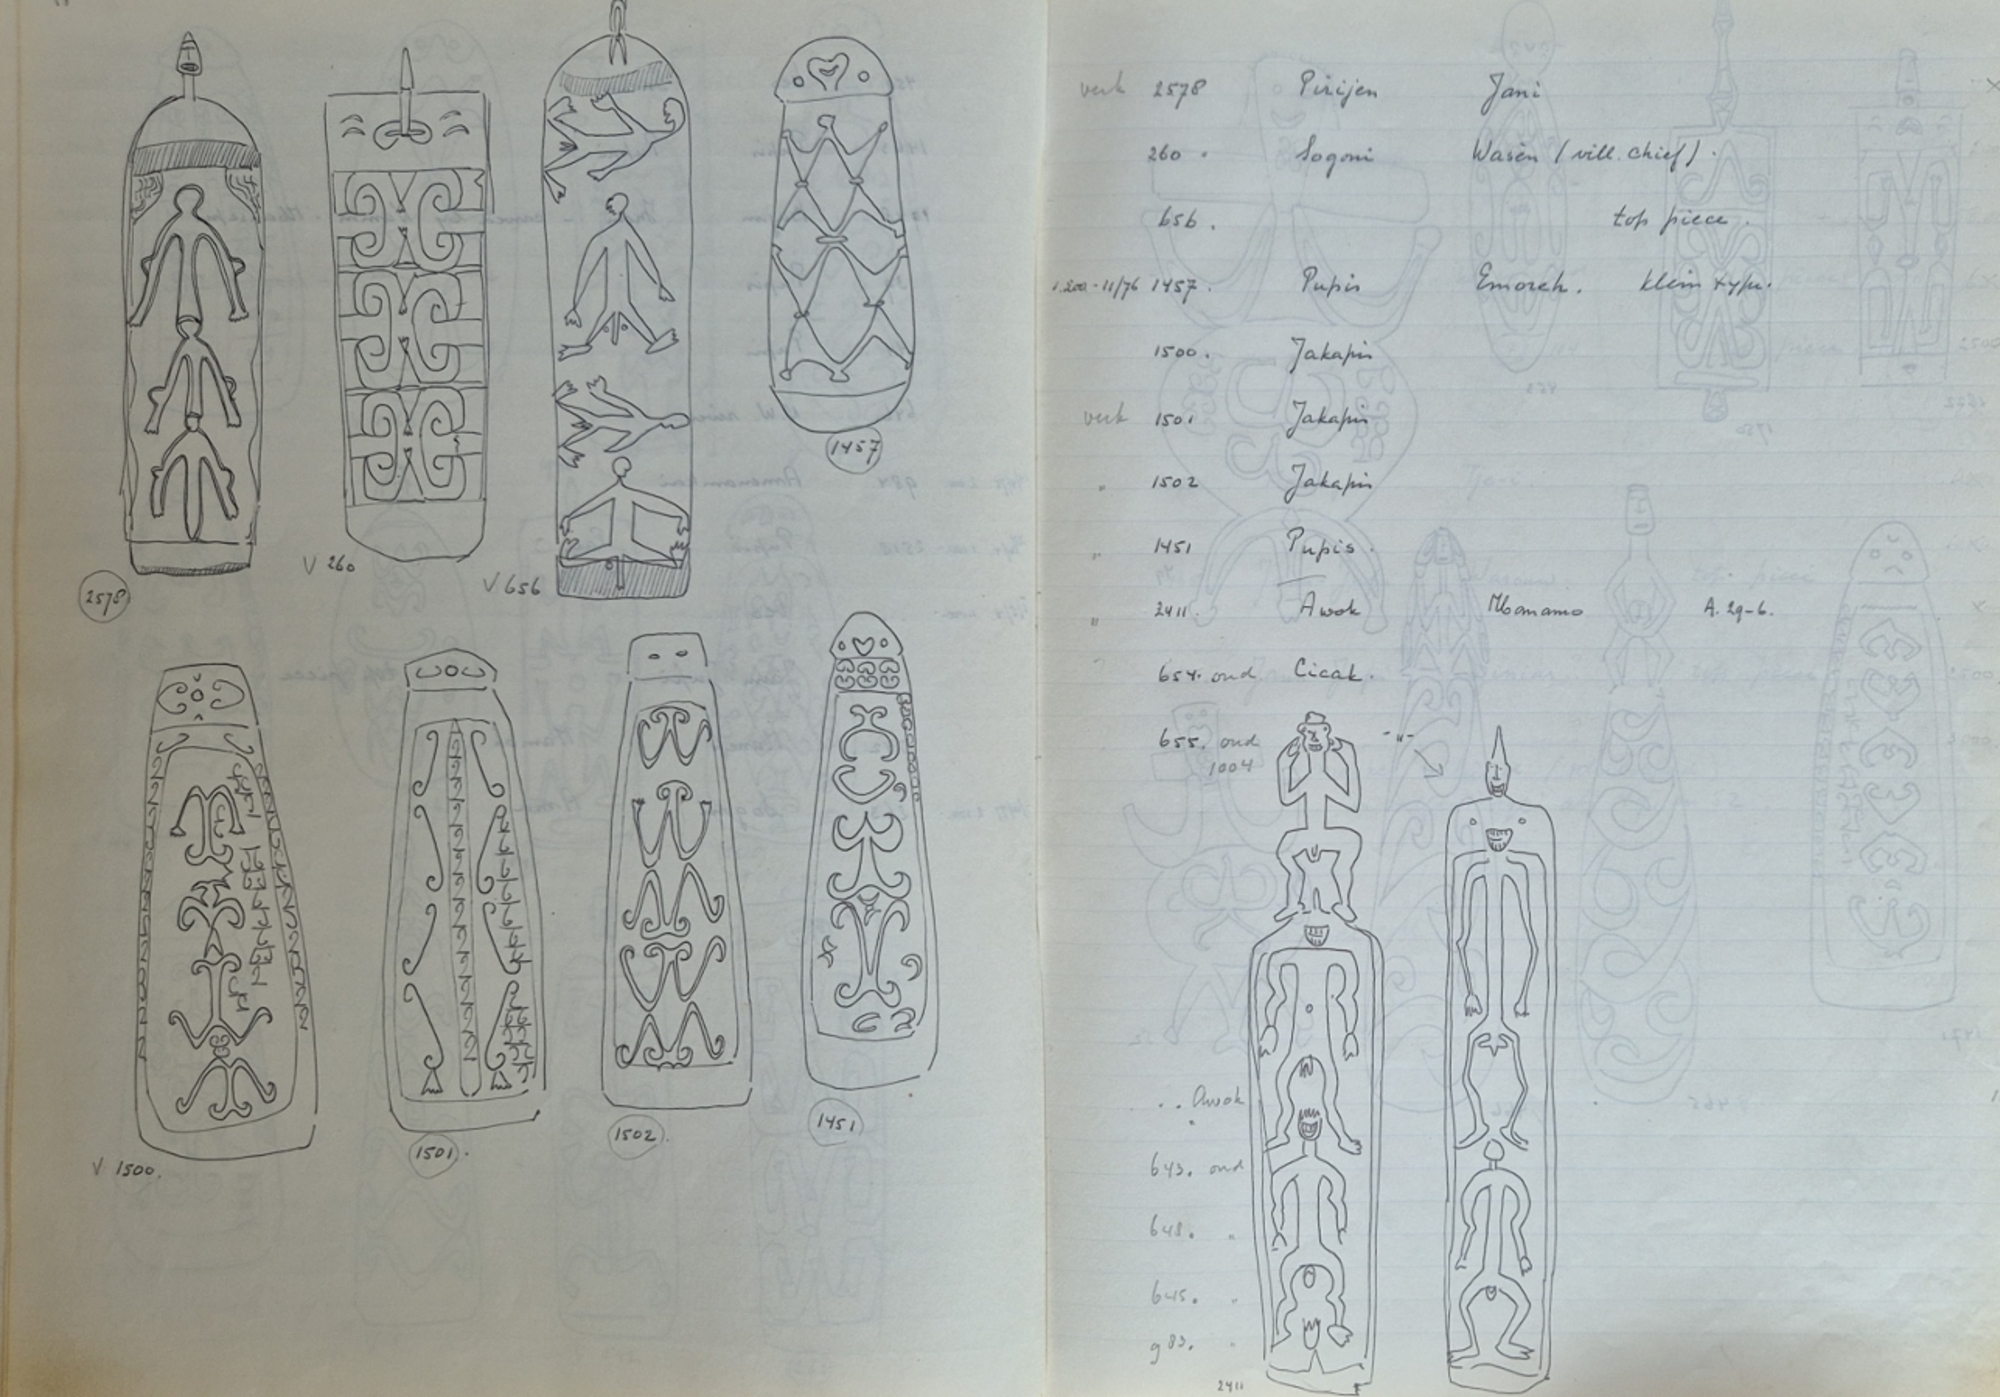 1457
2578
V 260
V 656
V 1500.
1501.
1502.
1451
verk 2578 Pirijen Jani
260. Sogoni Wasèn (vill. chief).
656. top piece.
11/76 1457. Pupis Emoreh. klein type.
1500. Jakapis
verk 1501 Jakapis
" 1502 Jakapis
" 1451 Pupis.
" 2411. Awok Mbanamo A. 29-6.
654. oud Cicak.
655. oud -"-
1004
.. Awok
643. oud
648. "
645. "
983. "
2411